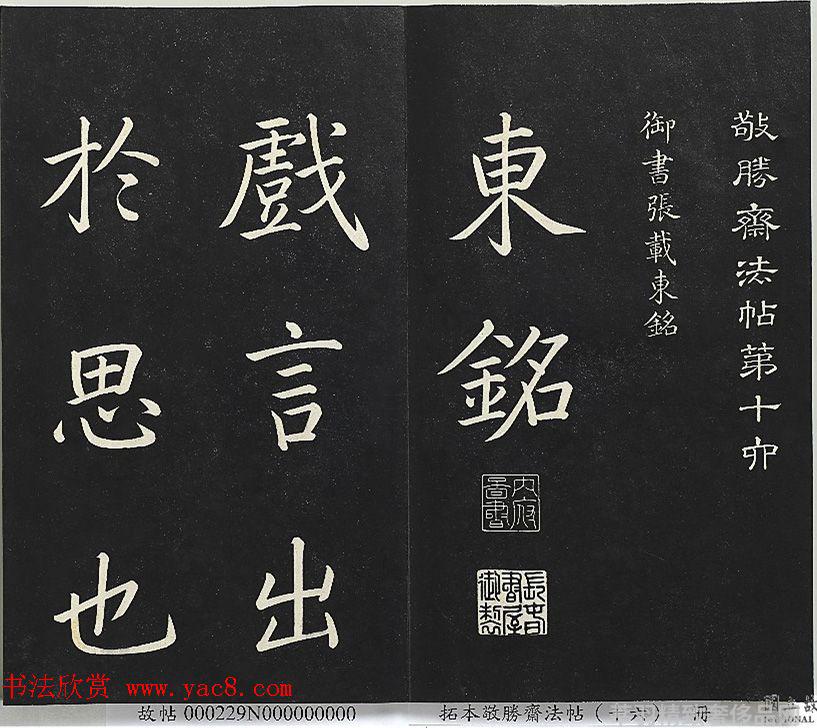 敬勝齋法帖第十六
御書張載東銘
東銘
戲言出
於思也
书法欣赏 www.yac8.com
故帖 000229N000000000
拓本敬勝齋法帖（十六） 册